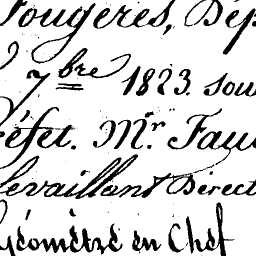 Fougères, Dép
7bre 1823. sou
éfet. Mr. Fau
levaillant Direct
Géomètre en Chef